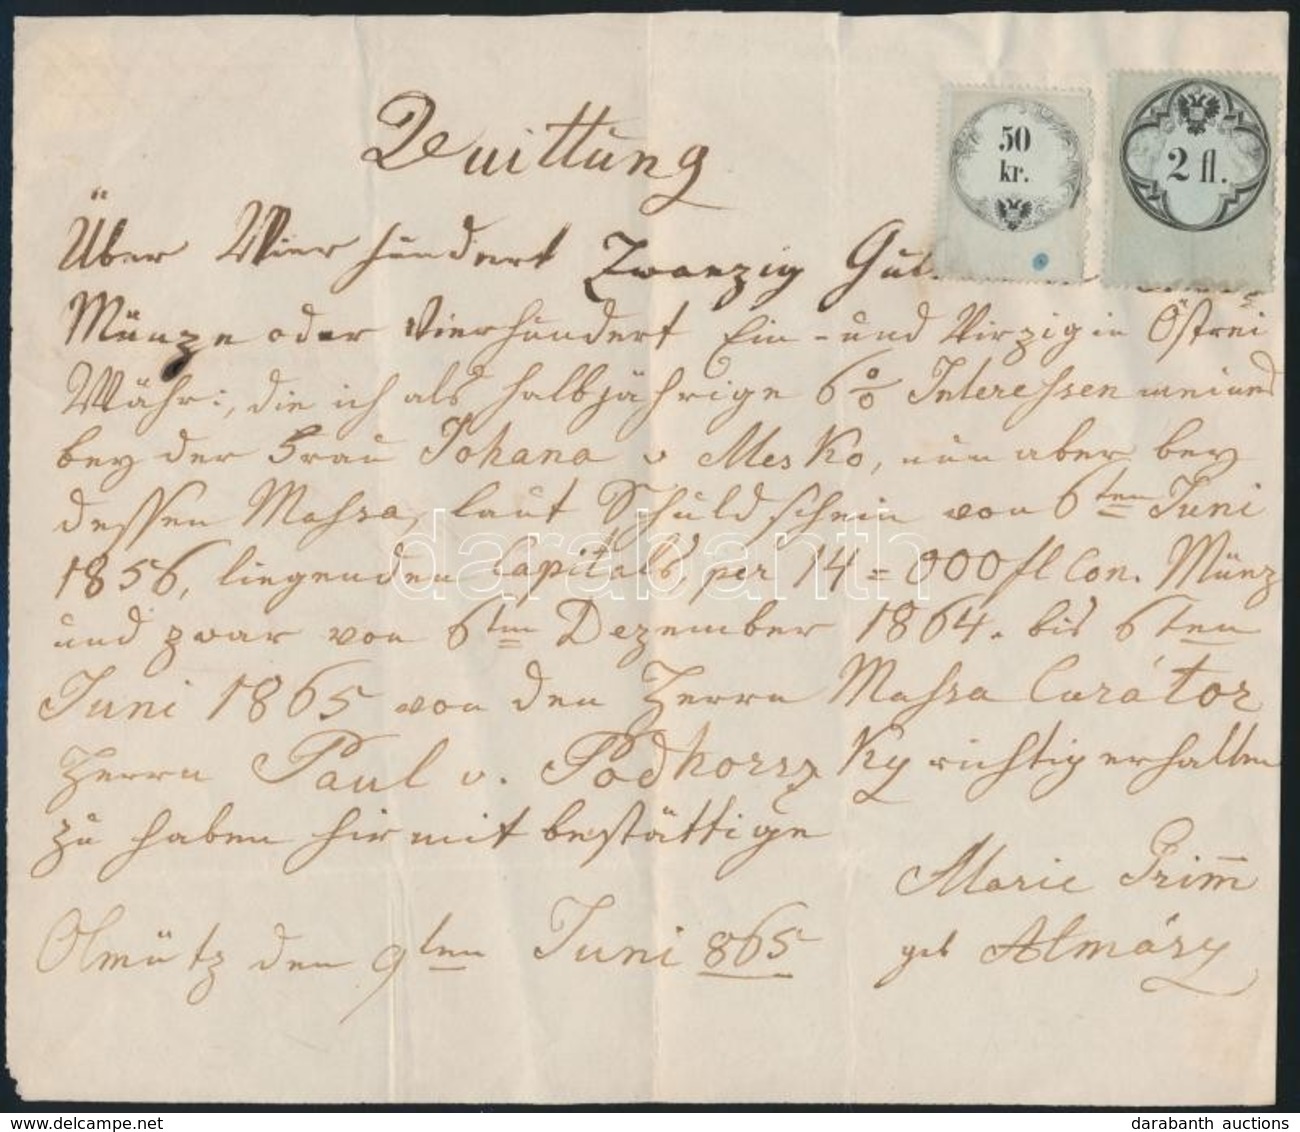 Quittung
50
kr.
2 fl.
Über Vierhundert Zwanzig
Münze oder Vierhundert Ein - und Virzig in Östrei
Währ:, die ich als halbjährige 6 % Interessen meines
bey der Frau Johana v Mesko, nun aber bey
dessen Massa, laut Schuldschein von 6ten Juni
1856, liegenden Capitals, per 14=000 fl Con. Münz
und zwar von 6ten Dezember 1864. bis 6ten
Juni 1865 von den Herrn Massa Curátor
Herrn Paul v. Podhorszky richtig erhalten
zu haben hirmit bestättige
Marie Grim̅
Olmütz den 9ten Juni 865
geb Almásy
darabanth
darabanth auctions
www.delcampe.net